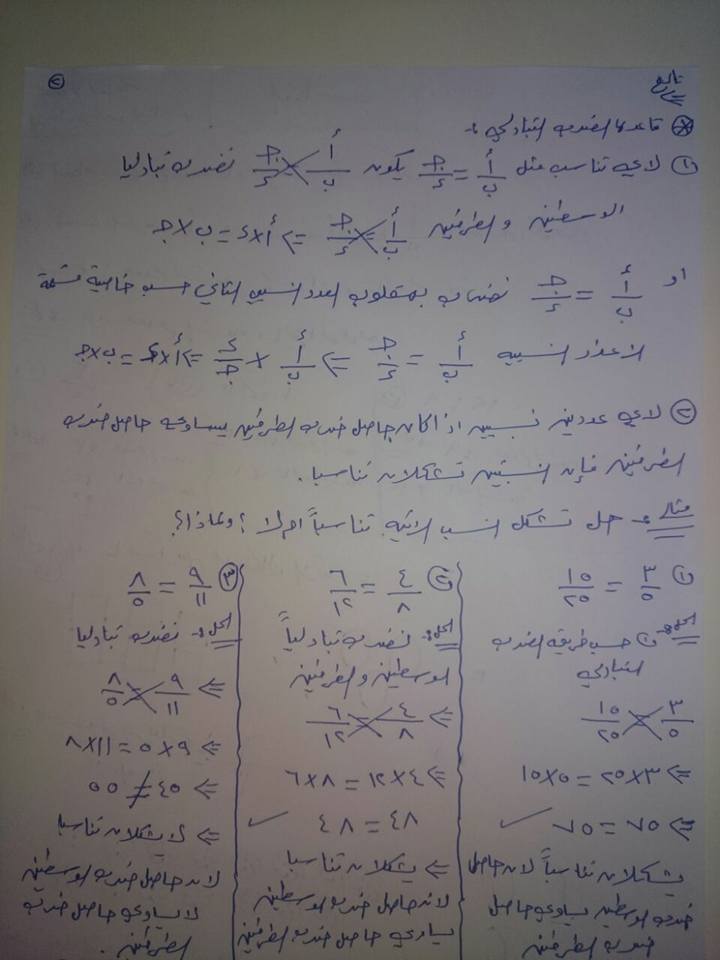 تابع
②
⊛ قاعدة الضرب التبادلي :-
① لأي تناسب مثل أ/ب = جـ/د يكون أ/ب × جـ/د نضرب تبادليا
الوسطين والطرفين أ/ب = جـ/د => أ×د = ب×جـ
او أ/ب = جـ/د نضرب بمقلوب العدد النسبي الثاني حسب خاصية قسمة
الأعداد النسبية أ/ب = جـ/د => أ/ب × د/جـ => أ×د = ب×جـ
② لأي عددين نسبيين اذا كان حاصل ضرب الطرفين يساوي حاصل ضرب
الطرفين فإن النسبتين تشكلان تناسبا .
مثال :- هل تشكل النسب الاتيه تناسباً ام لا ؟ ولماذا ؟
① ٣/٥ = ١٥/٢٥
الحل :- ① حسب طريقه الضرب
التبادلي
٣/٥ × ١٥/٢٥
=> ٣×٢٥ = ٥×١٥
=> ٧٥ = ٧٥ ✓
يشكلان تناسباً لان حاصل
ضرب الوسطين يساوي حاصل
ضرب الطرفين
② ٤/٨ = ٦/١٢
الحل :- نضرب تبادلياً
الوسطين والطرفين
=> ٤/٨ × ٦/١٢
=> ٤×١٢ = ٨×٦
٤٨ = ٤٨ ✓
=> يشكلان تناسبا
لان حاصل ضرب الوسطين
يساوي حاصل ضرب الطرفين
③ ٩/١١ = ٨/٥
الحل :- نضرب تبادليا
=> ٩/١١ × ٨/٥
=> ٩×٥ = ١١×٨
=> ٤٥ ≠ ٥٥
=> لا يشكلان تناسبا
لان حاصل ضرب الوسطين
لا يساوي حاصل ضرب
الطرفين .